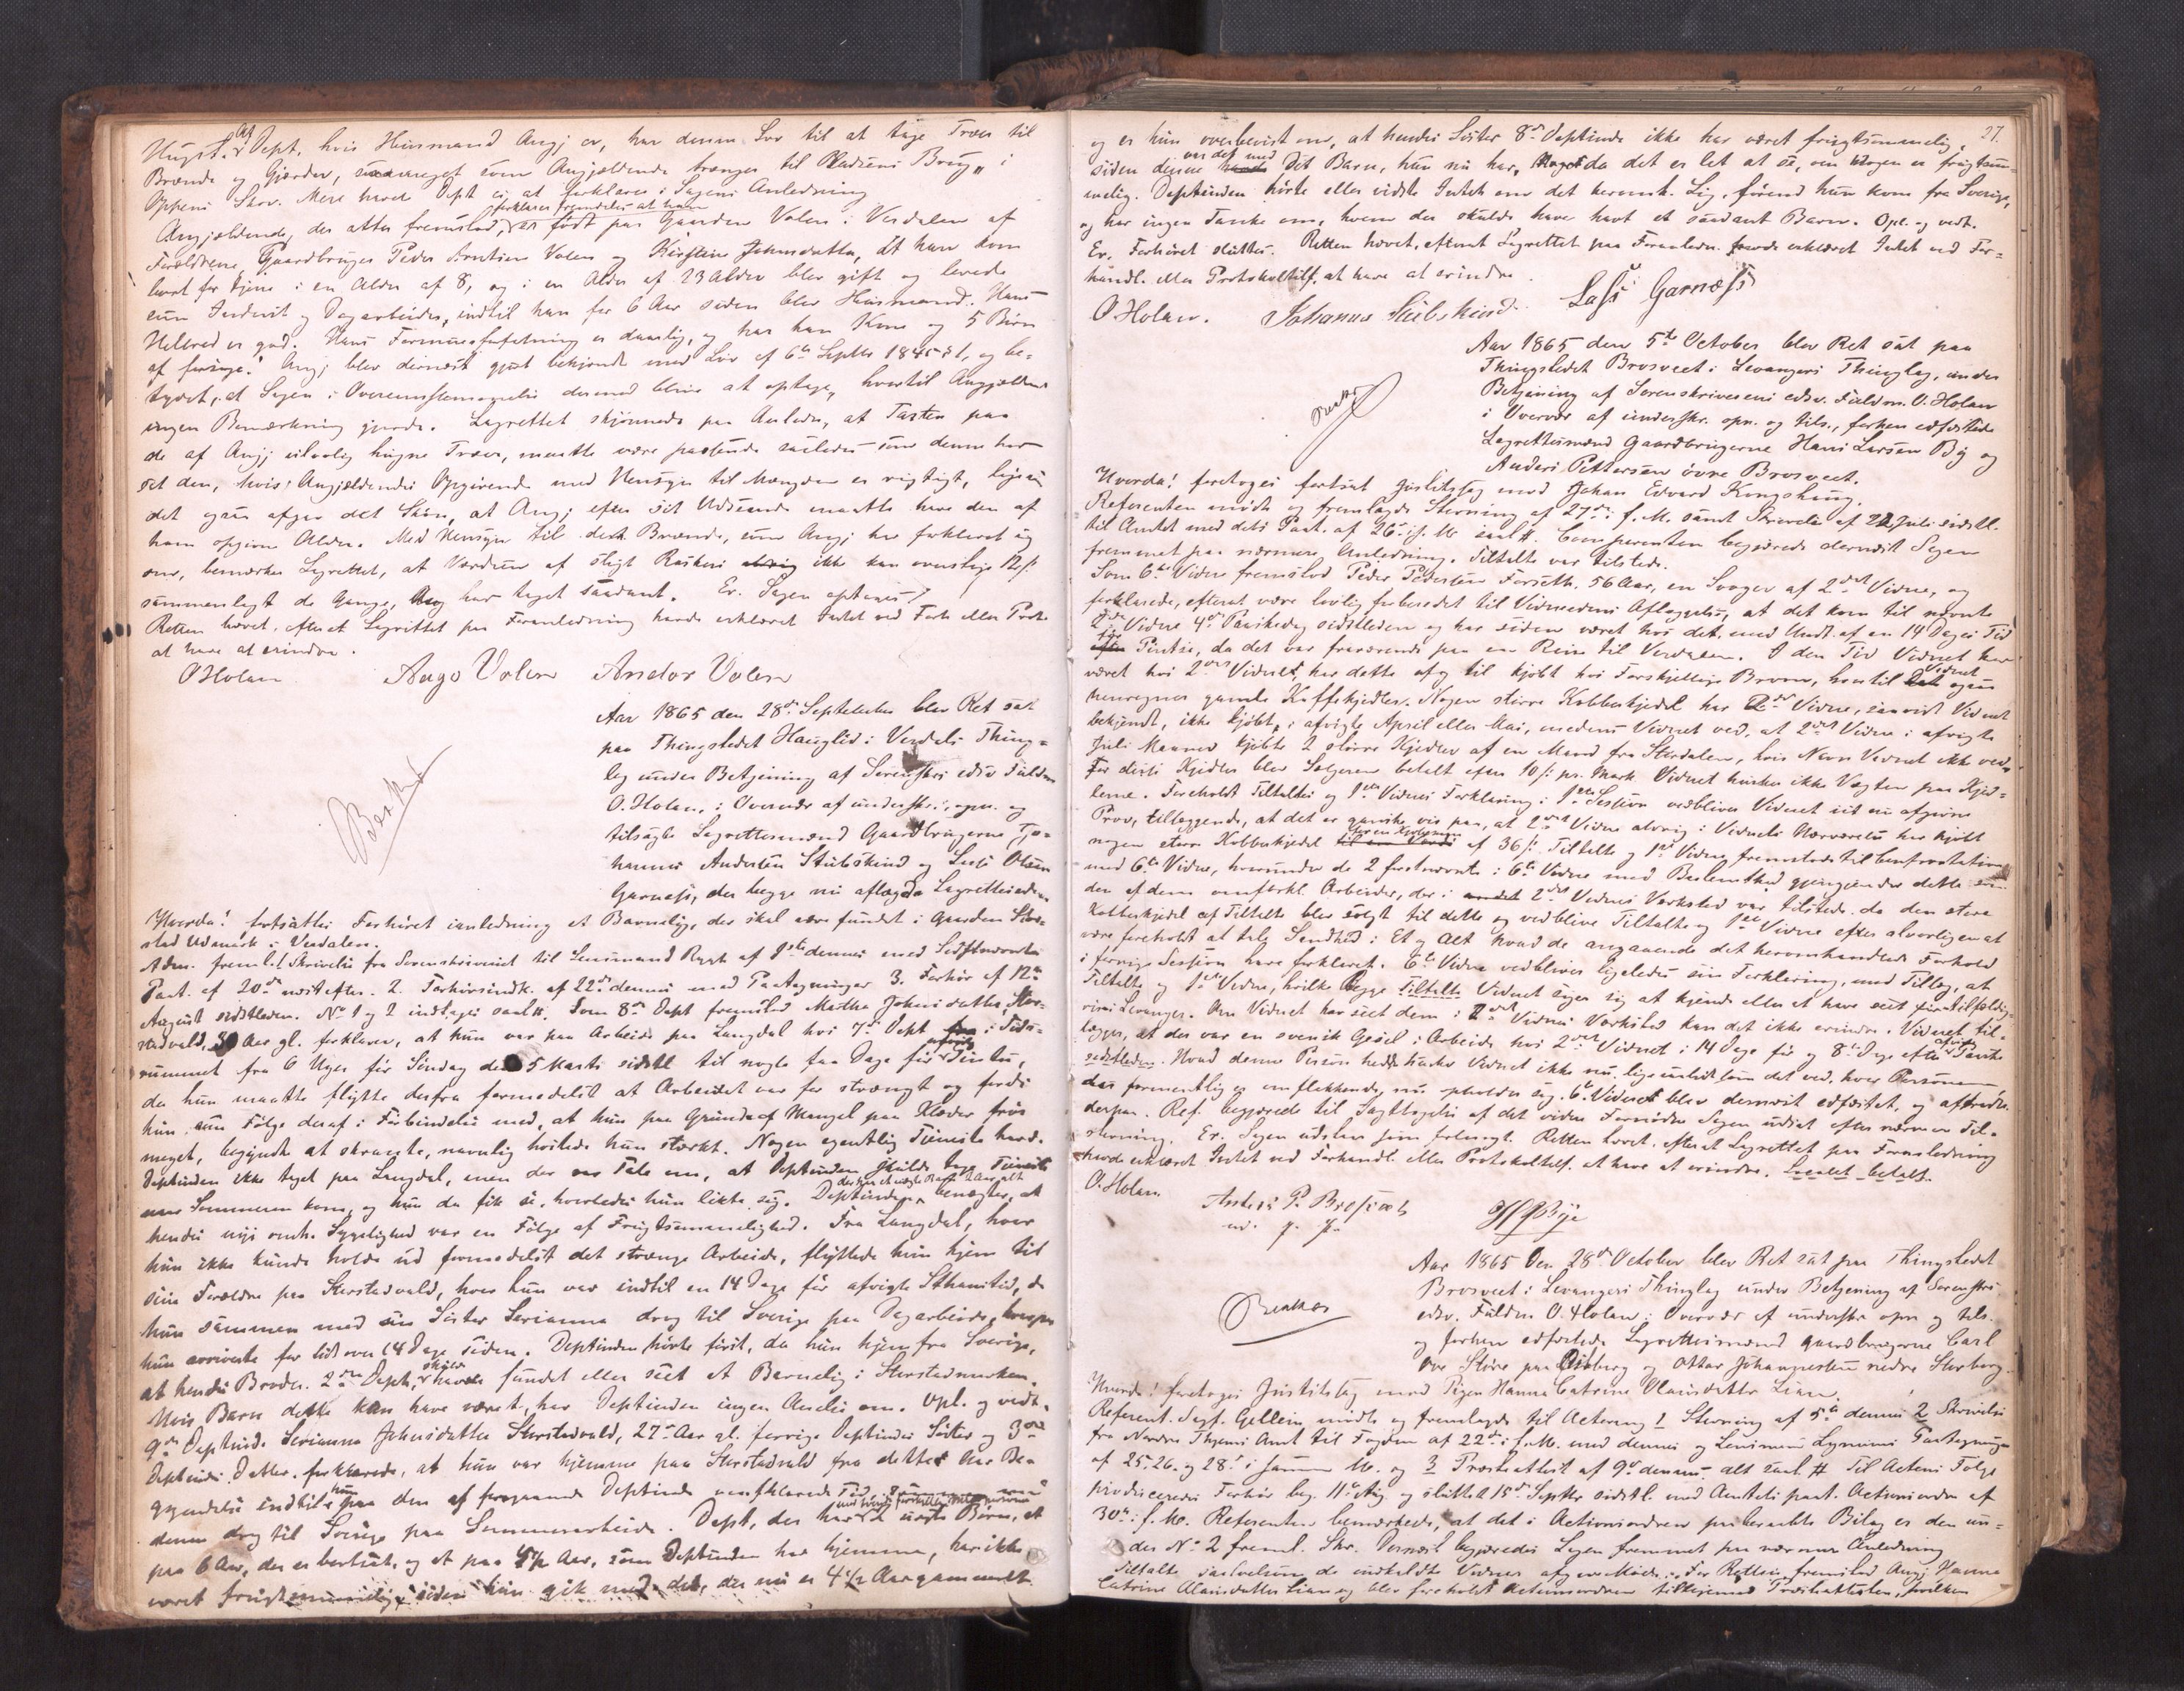 August. At Dept. hvis Huusmand Angj er, har denne Lov til at tage Træer til
Brænde og Gjærder, saameget som Angjældende trænger til Pladsens Brug, i
Oppens Skov. Mere havde Dept ei at forklare i Sagens Anledning
Angjældende, der atter fremstod, forklarer fremdeles at han er født paa Gaarden Volen i Verdalen af
Forældrene Gaardbruger Peder Arntsen Volen og Kirstine Johnsdatter, at han kom
bort for at tjene i en Alder af 8, og i en Alder af 23 Aldre blev gift og levede
som Inderst og Dagarbeider, indtil han for 6 Aar siden blev Huusmand. Hans
Helbred er god. Hans Formuesforfatning er daarlig, og har han Kone og 5 Børn
at forsørge. Angj blev dernæst gjort bekjendt med Lov af 6te Septbr 1845 § 1, og be-
tydet, at Sagen i Overensstemmelse dermed bliver at optage, hvortil Angjældende
ingen Bemærkning gjorde. Lagrettet skjønnede paa Anledn, at Taxten paa
de af Angj ulovlig hugne Træer, maatte være passende saaledes som denne har
sat den, hvis Angjældendes Opgivende med Hensyn til Mængden er rigtigt, ligesom
det ogsaa afgav det Skjøn, at Angj efter sit Udseende maatte have den af
ham opgivne Alder. Med Hensyn til det Brænde, som Angj har forklaret sig
om, bemærker Lagrettet, at Værdien af sligt Raskeri ikke kan overstige
sammenlagt de Gange, Ang har taget saadant. Er. Sagen optages!
Retten hævet, efterat Lagrettet paa Foranledning havde erklæret Intet ved Forh. eller Prot.
at have at erindre.
O Holan Aage Volen Andor Volen
Aar 1865 den 28de September blev Ret sat
paa Thingstedet Hauglid i Verdals Thing-
lag under Betjening af Sorenskri edsv Fuldm
O. Holan, i Overvær af underskr. opn. og
tilsagte Lagrettesmænd Gaardbrugerne Jo-
hannes Andersen Stubskind og Lars Olsen
Garnæs, der begge nu aflagde Lagretteseden
Beskr
Hvorda! fortsattes Forhøret i anledning et Barnelig, der skal være fundet i Gaarden Stor-
stad Udmark i Verdalen.
Adm. freml. 1 Skrivelse fra Sorenskriveriet til Lensmand Rygh af 1ste dennes med Sidstnævnte
Paat. af 20de næstefter. 2. Forhørsindk. af 22de dennes med Paategninger 3. Forhør af 12te
August sidstleden. No 1 og 2 indtages saal #. Som 8de Dept fremstod Martha Johnsdatter, Stor-
stadvald, 30 Aar gl. forklarer, at hun var paa Arbeide paa Langdal hos 7de Dept i Tids-
rummet fra 6 Uger før Søndag den 5 Marts sidstl til nogle faa Dage før afvigte Pintse,
da hun maatte flytte derfra formedelst at Arbeidet var for strængt og fordi
hun som Følge deraf i Forbindelse med, at hun paa Grund af Mangel paa Klæder frøs
meget, begyndte at skrante, navnlig hostede hun stærkt. Nogen egentlig Tjeneste havde
Deptinden ikke taget paa Langdal, men der var Tale om, at Deptinden skulde tage Tjeneste
naar Sommeren kom, og hun da fik se, hvorledes hun likte sig. Deptinden benægter, at
hendes nys omh. Sygelighed var en Følge af Frugtsommelighed. Fra Langdal, hvor
hun ikke kunde holde ud formedelst det strænge Arbeide, flyttede hun hjem til
sine Forældre paa Storstadvald, hvor hun var indtil en 14 Dage før afvigte Sthansti d, da
hun sammen med sin Søster Serianna drog til Sverige paa Dagarbeide, hvorpaa
hun arriverte for lidt over 14 Dage siden. Deptinden hørte først, da hun hjem fra Sverige,
at hendes Broder. 2den Dept, skulde have fundet eller seet et Barnelig i Storstadmarken.
Hvis Barn dette kan have været, har Deptinden ingen Anelse om. Opl. og vedt.
9de Deptinde Serianna Johnsdatter Storstadvald, 27de Aar gl. forrige Deptindes Søster og 3die
Deptindes Datter, forklarede, at hun var hjemme paa Storstadvald fra dette Aars Be-
gyndelse indtil hun paa den af foregaaende Deptinde omforklarede Tid
denne drog til Sverige paa Sommerarbeide. Dept, der har 2 uægte Børn, et
paa 6 Aar, der er bortsat, og et paa 4 1/2 Aar, som Deptinden har hjemme, har ikke
været frugtsommelig siden hun gik med det, der nu er 4 1/2 Aar gammelt
27.
og er hun overbevist om, at hendes Søster 8de Deptinde ikke har været frugtsommelig,
siden denne var det med Dit Barn, hun nu har, da det er let at se, om Nogen er frugtsom-
melig. Deptinden hørte eller vidste Intet om det heromh. Lig, førend hun kom fra Sverige,
og har ingen Tanke om, hvem der skulde have havt et saadant Barn. Opl. og vedt.
Er. Forhøret sluttes. Retten hævet, efterat Lagrettet paa Foranledn. havde erklæret Intet ved For-
handl. eller Protokoltilf. at have at erindre.
O. Holan. Johannes Stubskind. Lars Garnæs
Aar 1865 den 5te October blev Ret sat paa
Thingstedet Brosveet i Levangers Thinglag, under
Betjening af Sorenskriverens edsv. Fuldm. O. Holan
i Overvær af underskr. opn. og tils., forhen edfæstede
Lagrettesmænd Gaardbrugerne Hans Larsen By og
Anders Pettersen øvre Brosveet.
Beskr
Hvorda! foretoges fortsat Justitssag mod Johan Edvard Kongshaug.
Referenten mødte og fremlagde Stevning af 27de f. M. samt Skrivelse af 22 Juli sidstl.
til Amtet med dets Paat. af 26de f. M saal #. Comparenten begjærede dernæst Sagen
fremmet paa nærmere Anledning. Tiltalte var tilstede.
Som 6te Vidne fremstod Peder Pedersen Forseth, 56 Aar, en Svoger af 2det Vidne, og
forklarede, efterat være lovlig forberedet til Vidneedens Aflæggelse, at det kom til nævnte
2det Vidne 4de Paaskedag sidstleden og har siden været hos det, med Undt. af en 14 Dages Tid
før Pintse, da det var fraværende paa en Reise til Verdalen. I den Tid Vidnet har
været hos 2det Vidne, har dette af og til kjøbt hos Forskjellige Broren, hvortil Vidnet ogsaa
henregner gamle Kaffekjedler. Nogen større Kobberkjedel har 2det Vidne, saavidt Vidnet
bekjendt, ikke kjøbt, i afvigte April eller Mai, medens Vidnet ved, at 2det Vidne i afvigte
Juli Maaned kjøbte 2 større Kjedler af en Mand fra Størdalen, hvis Navn Vidnet ikke ved.
For disse Kjedler blev Sælgeren betalt efter 10 s. pr. Mark Vidnet husker ikke Vægten paa Kjed-
lerne. Foreholdt Tiltaltes og 1ste Vidnes Forklaring i 1ste Session vedbliver Vidnet sit nu afgivne
Prov, tillæggende, at det er ganske vis paa, at 2det Vidne aldrig i Vidnets Nærværelse har kjøbt
nogen større Kobberkjedel af 36 s. Tiltalte og 1ste Vidne fremstod til Confrontation
med 6te Vidne, hvorunder de 2 førstnævnte i 6te Vidne med Bestemthed gjenkjender dette som
den af dem omforkl. Arbeider, der i 2det Vidnes Værksted var tilstede, da den større
Kobberkjedel af Tiltalte blev solgt til dette og vedblive Tiltalte og 1ste Vidne efter alvorligen at
være foreholdt at tale Sandhed i Et og Alt hvad de angaaende det heromhandlede Forhold
i forrige Session have forklaret. 6te Vidne vedbliver ligeledes sin Forklaring, med Tillæg, at
Tiltalte og 1ste Vidne, hvilke begge Vidnet siger sig at kjende eller at have seet før tilfældig-
vis i Levanger. Om Vidnet har seet dem i 2det Vidnes Værksted kan det ikke erindre. Vidnet til-
lægger, at der var en svensk Gesel i Arbeide hos 2det Vidne i 14 Dage før og 8te Dage efter afvigte Paaske
sidstleden. Hvad denne Person hedte husker Vidnet ikke nu, ligesaalidt som det ved, hvor Personen
der formentlig er omflakkende, nu opholder sig. 6te Vidnet blev dernæst edfæstet, og aftraadte
derpaa. Ref. begjærede til Iagttagelse af det videre Fornødne Sagen udsat efter nærmere Til-
stevning. Er. Sagen udsættes som forlangt. Retten hævet, efterat Lagrettet paa Foranledning
havde erklæret Intet ved Forhandl. eller Protokoltilf. at have at erindre. Localet betalt.
O. Holan.
Anders P. Brosveet H L Bye
m. p. P.
Aar 1865 den 28de October blev Ret sat paa Thingstedet
Brosveet i Levangers Thinglag under Betjening af Sorenskri
edsv. Fuldm O. Holan, i Overvær af underskr opn og tils.
og forhen edfæstede Lagrettesmænd Gaardbrugerne Carl
Ove Støre paa Oisberg og Ottar Johannessen nedre Storborg.
Beskr
Hvorda! foretoges Justitssag mod Pigen Hanna Catrine Olausdatter Lian.
Referent. Sagf. Gellein mødte og fremlagde til Actering 1 Stevning af 5te dennes 2 Skrivelse
fra Nordre Thjems Amt til Fogden af 22de f. M. med dennes og Lensmand Lynums Paategninger
af 25. 26. og 28de i samme M. og 3 Præsteattest af 9de dennes alt saal # Til Actens Følge
produceredes Forhør beg. 11te Aug. og sluttet 15de Septbr sidstl. med Amtets paat. Actionsordre af
30te f. M. Referenten bemærkede, at det i Actionsordren paaberaabte Bilag er den un-
der No 2 freml. Skr. Dernæst begjæredes Sagen fremmet paa nærmere Anledning
Tiltalte saavelsom de indkaldte Vidner afgave Møde. For Retten fremstod Angj. Hanna
Catrine Olausdatter Lian og blev foreholdt Actionsordren tilligemed Præsteattesten, hvilken